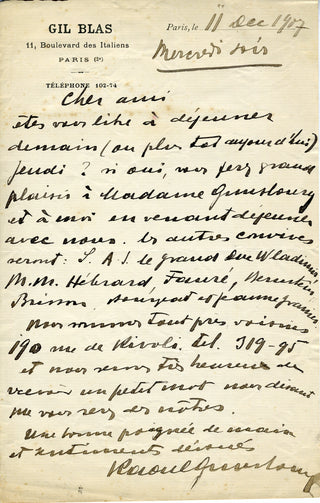 GIL BLAS
11, Boulevard des Italiens
PARIS (2e)
TÉLÉPHONE 102-74
Paris, le 11 Dec 1907
Mercredi soir
Cher ami
etes vous libre à déjeuner
demain (ou plus tot aujourd'hui)
jeudi ? si oui, vous ferez grand
plaisir à Madame Gunsbourg
et à moi en venant déjeuner
avec nous. les autres convives
seront : S. A. I. le grand Duc Wladimir,
M.M. Hébrard, Fauré, Bernstein,
Brisson, et Jeanne Granier.
Nous sommes tout près voisins
190 rue de Rivoli. tel. 319-95
et nous serons très heureux de
recevoir un petit mot nous disant
que vous serez des notres.
Une bonne poignée de main
et sentiments dévoués
Raoul Gunsbourg